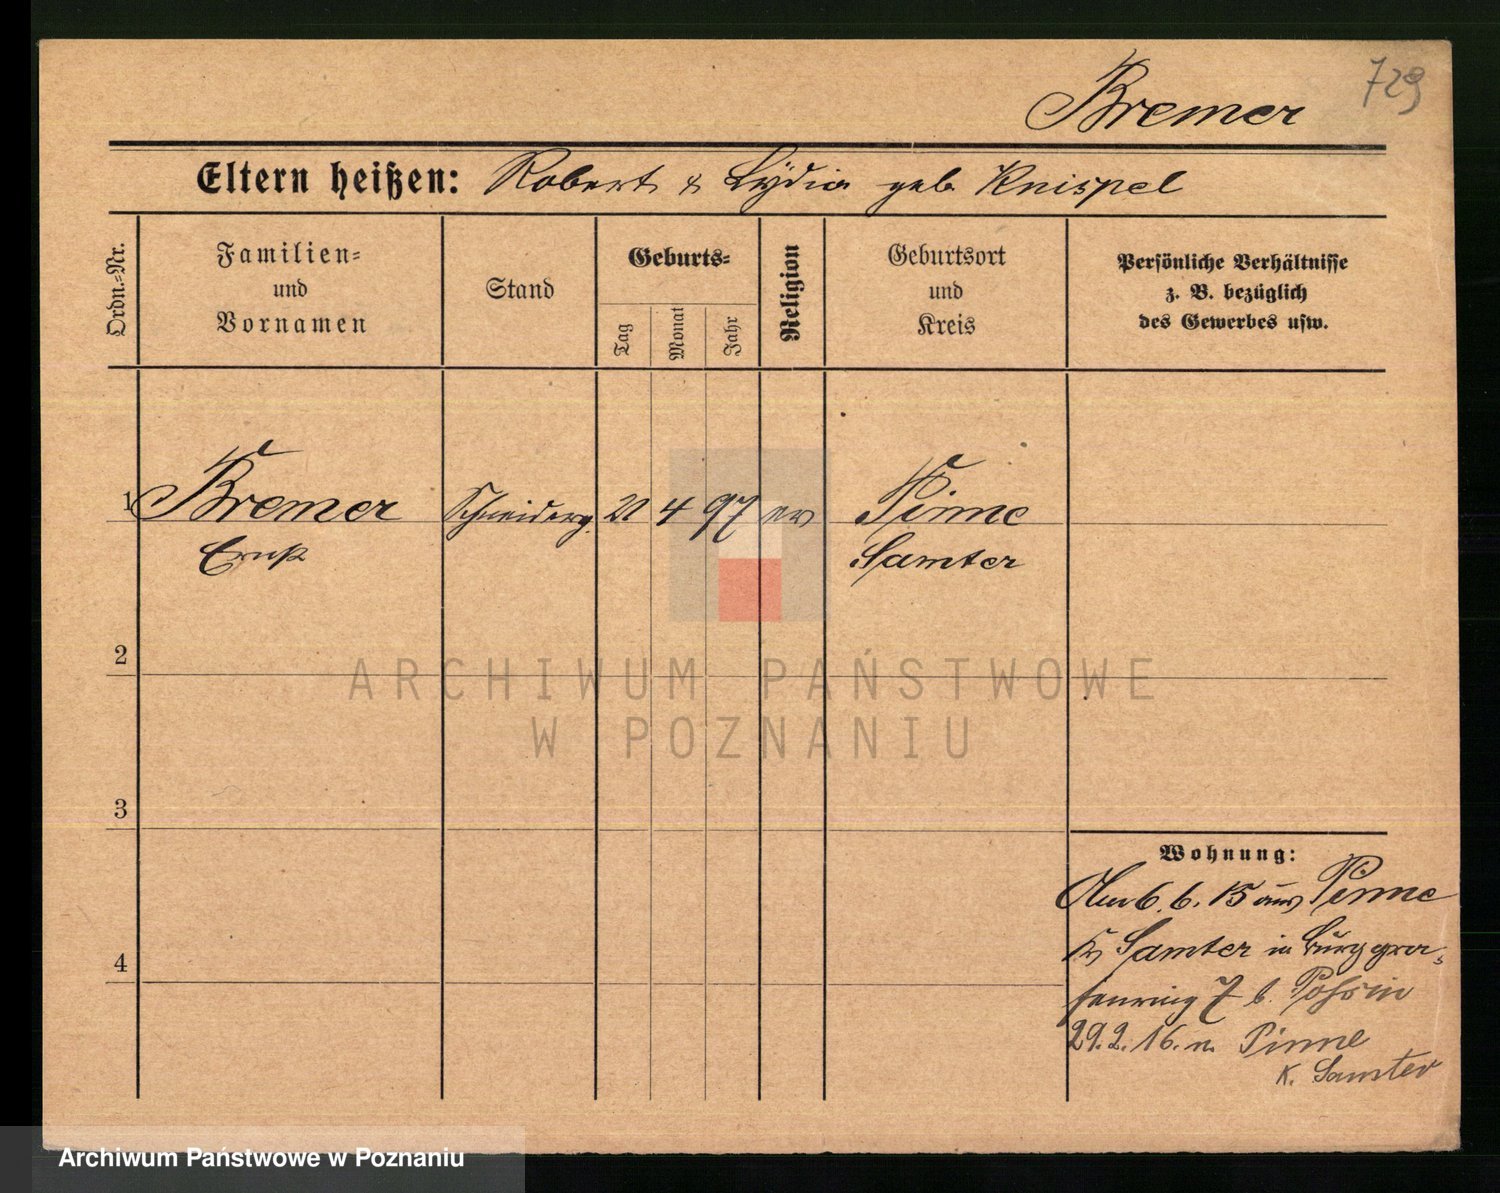 729
Bremer
Eltern heißen: Robert & Lydia geb Knispel
Ordn.-Nr.
Familien-
und
Vornamen
Stand
Geburts-
Tag
Monat
Jahr
Religion
Geburtsort
und
Kreis
Persönliche Verhältnisse
z. B. bezüglich
des Gewerbes usw.
1 Bremer Schneiderg. 21 4 97 ev Pinne
Ernst Samter
2
3
4
Wohnung:
6. 6. 15 aus Pinne
Kr Samter in Burggra-
fenring 7 b.
29.2.16. n. Pinne
K. Samter
ARCHIWUM PAŃSTWOWE
W POZNANIU
Archiwum Państwowe w Poznaniu